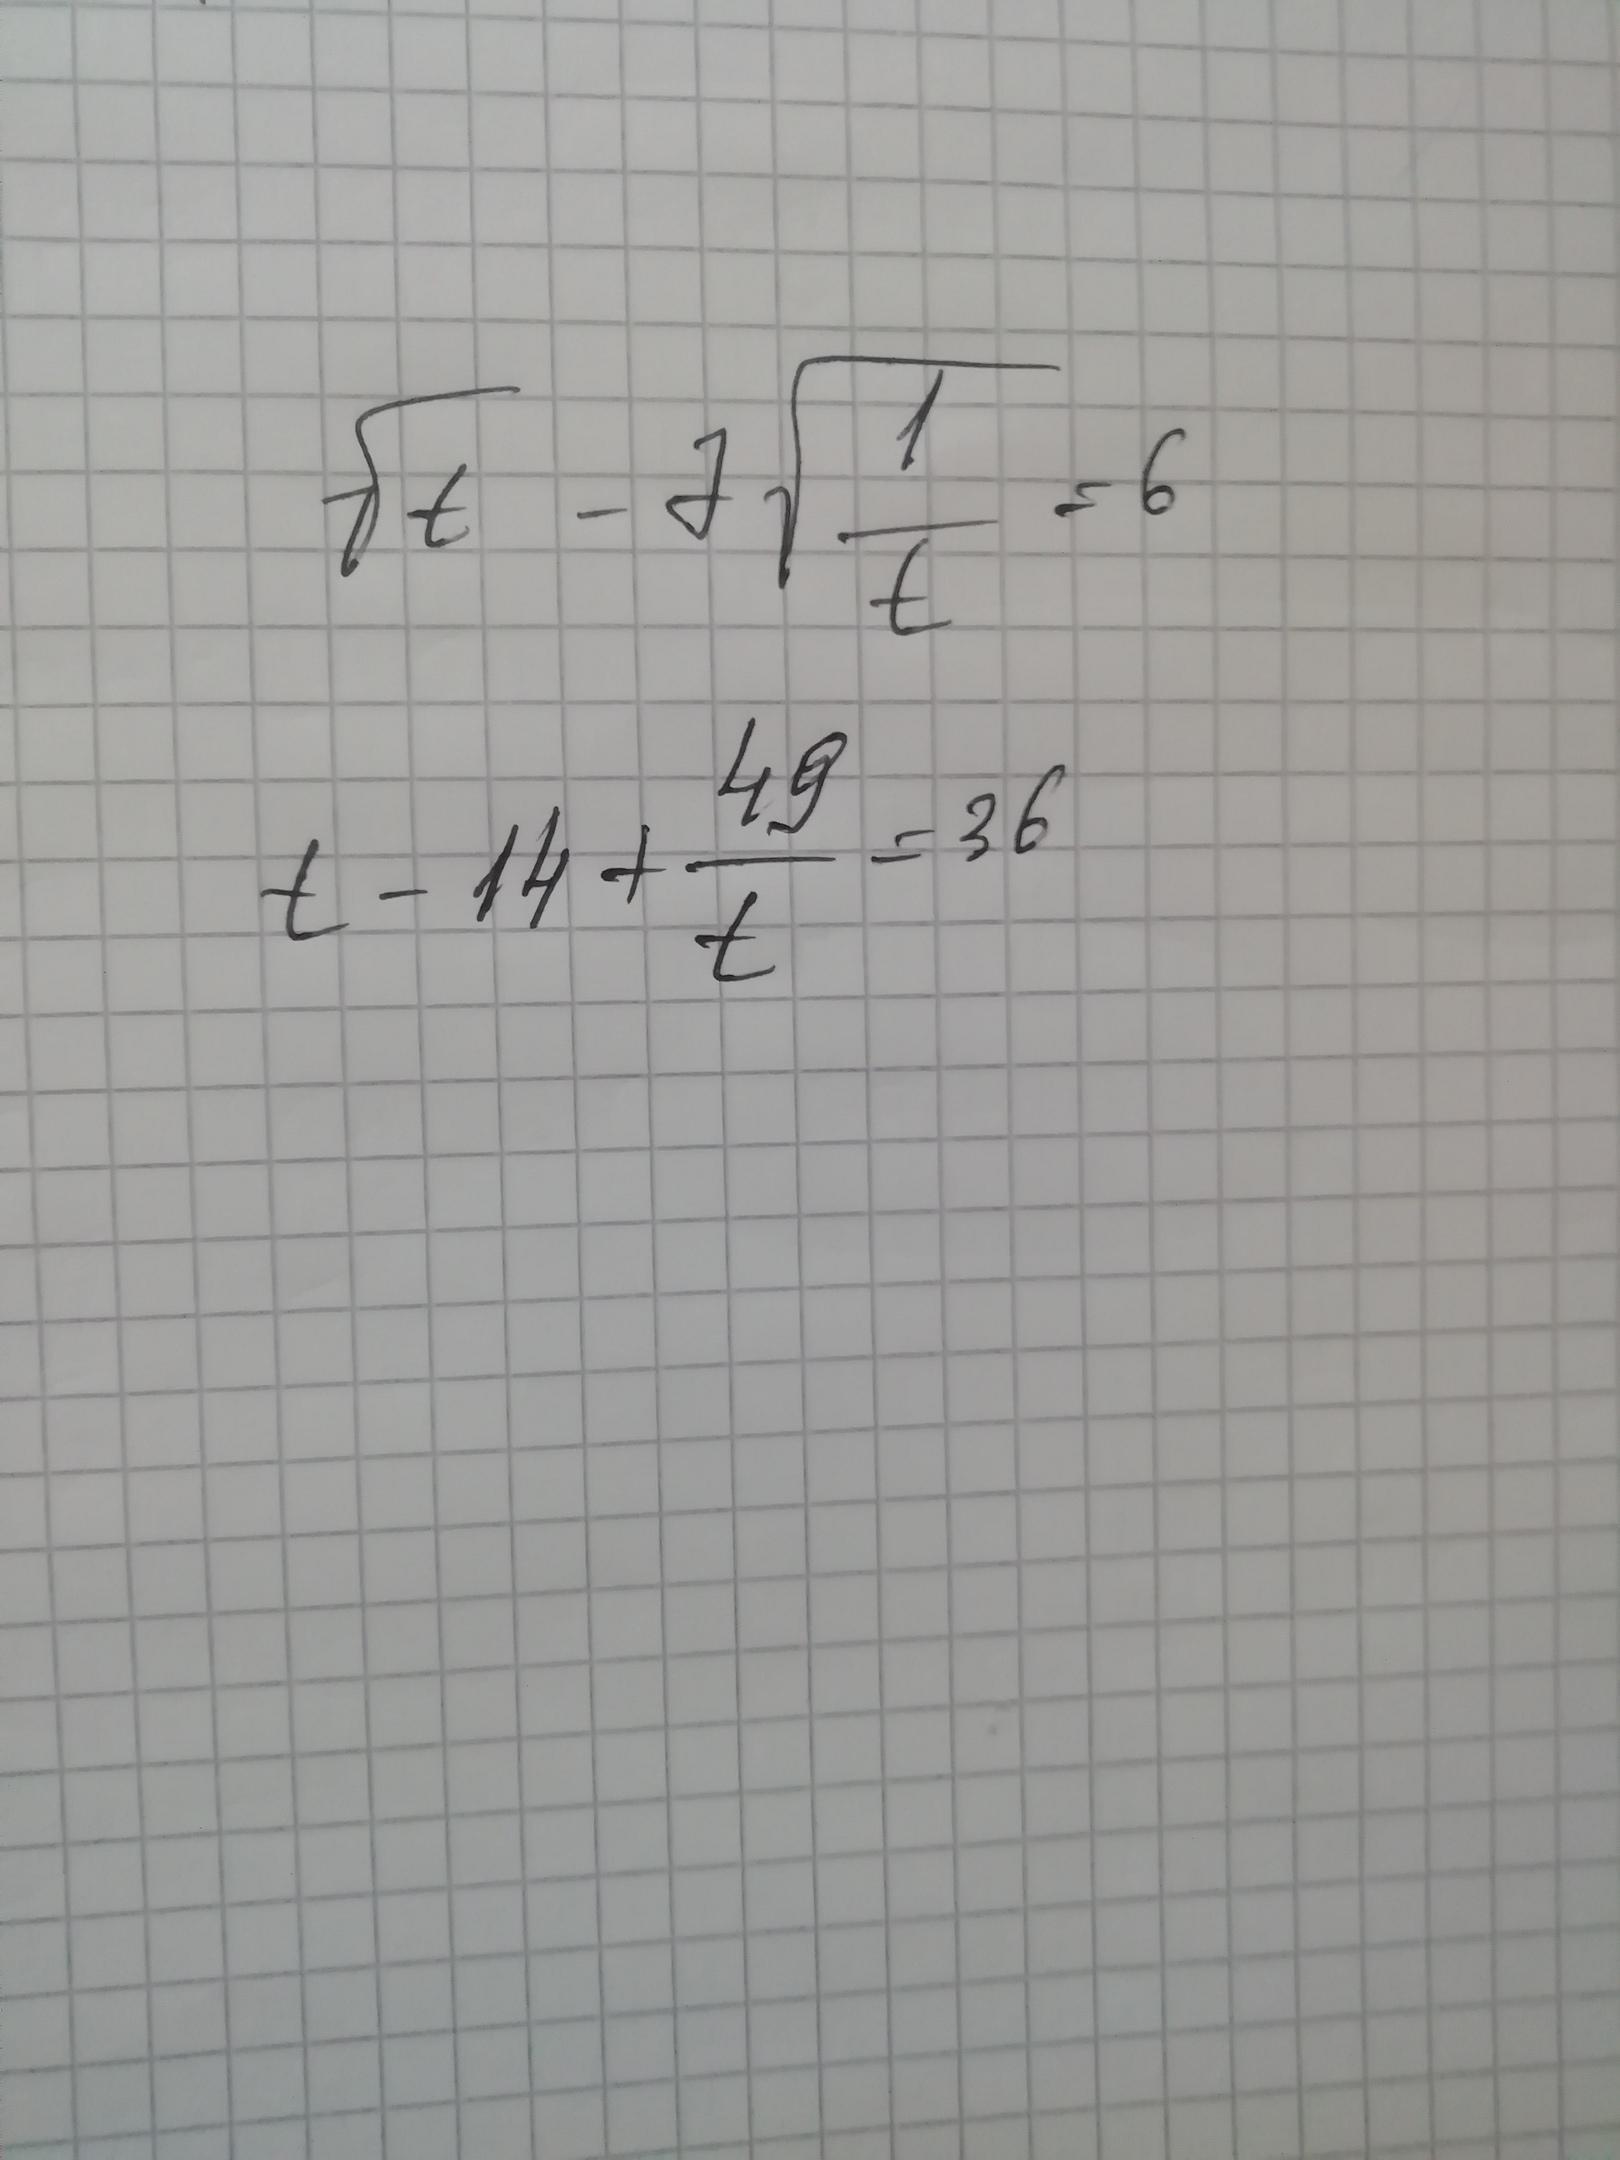 √t - 7√(1/t) = 6
t - 14 + 49/t = 36